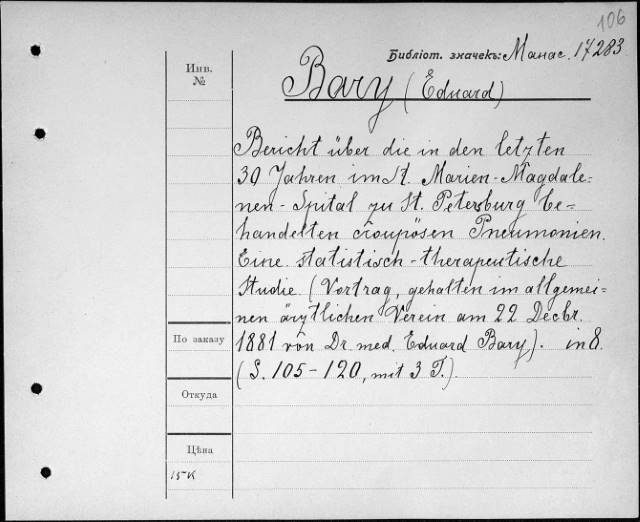 106
Библiот. значекъ: Манас. 17283
Инв.
№
Bary (Eduard)
Bericht über die in den letzten
30 Jahren im St. Marien-Magdale-
nen-Spital zu St. Petersburg be-
handelten croupösen Pneumonien.
Eine statistisch-therapeutische
Studie (Vortrag, gehalten im allgemei-
nen ärztlichen Verein am 22 Decbr.
По заказу
1881 von Dr. med. Eduard Bary). in 8.
(S. 105-120, mit 3 T.).
Откуда
Цѣна
15 к